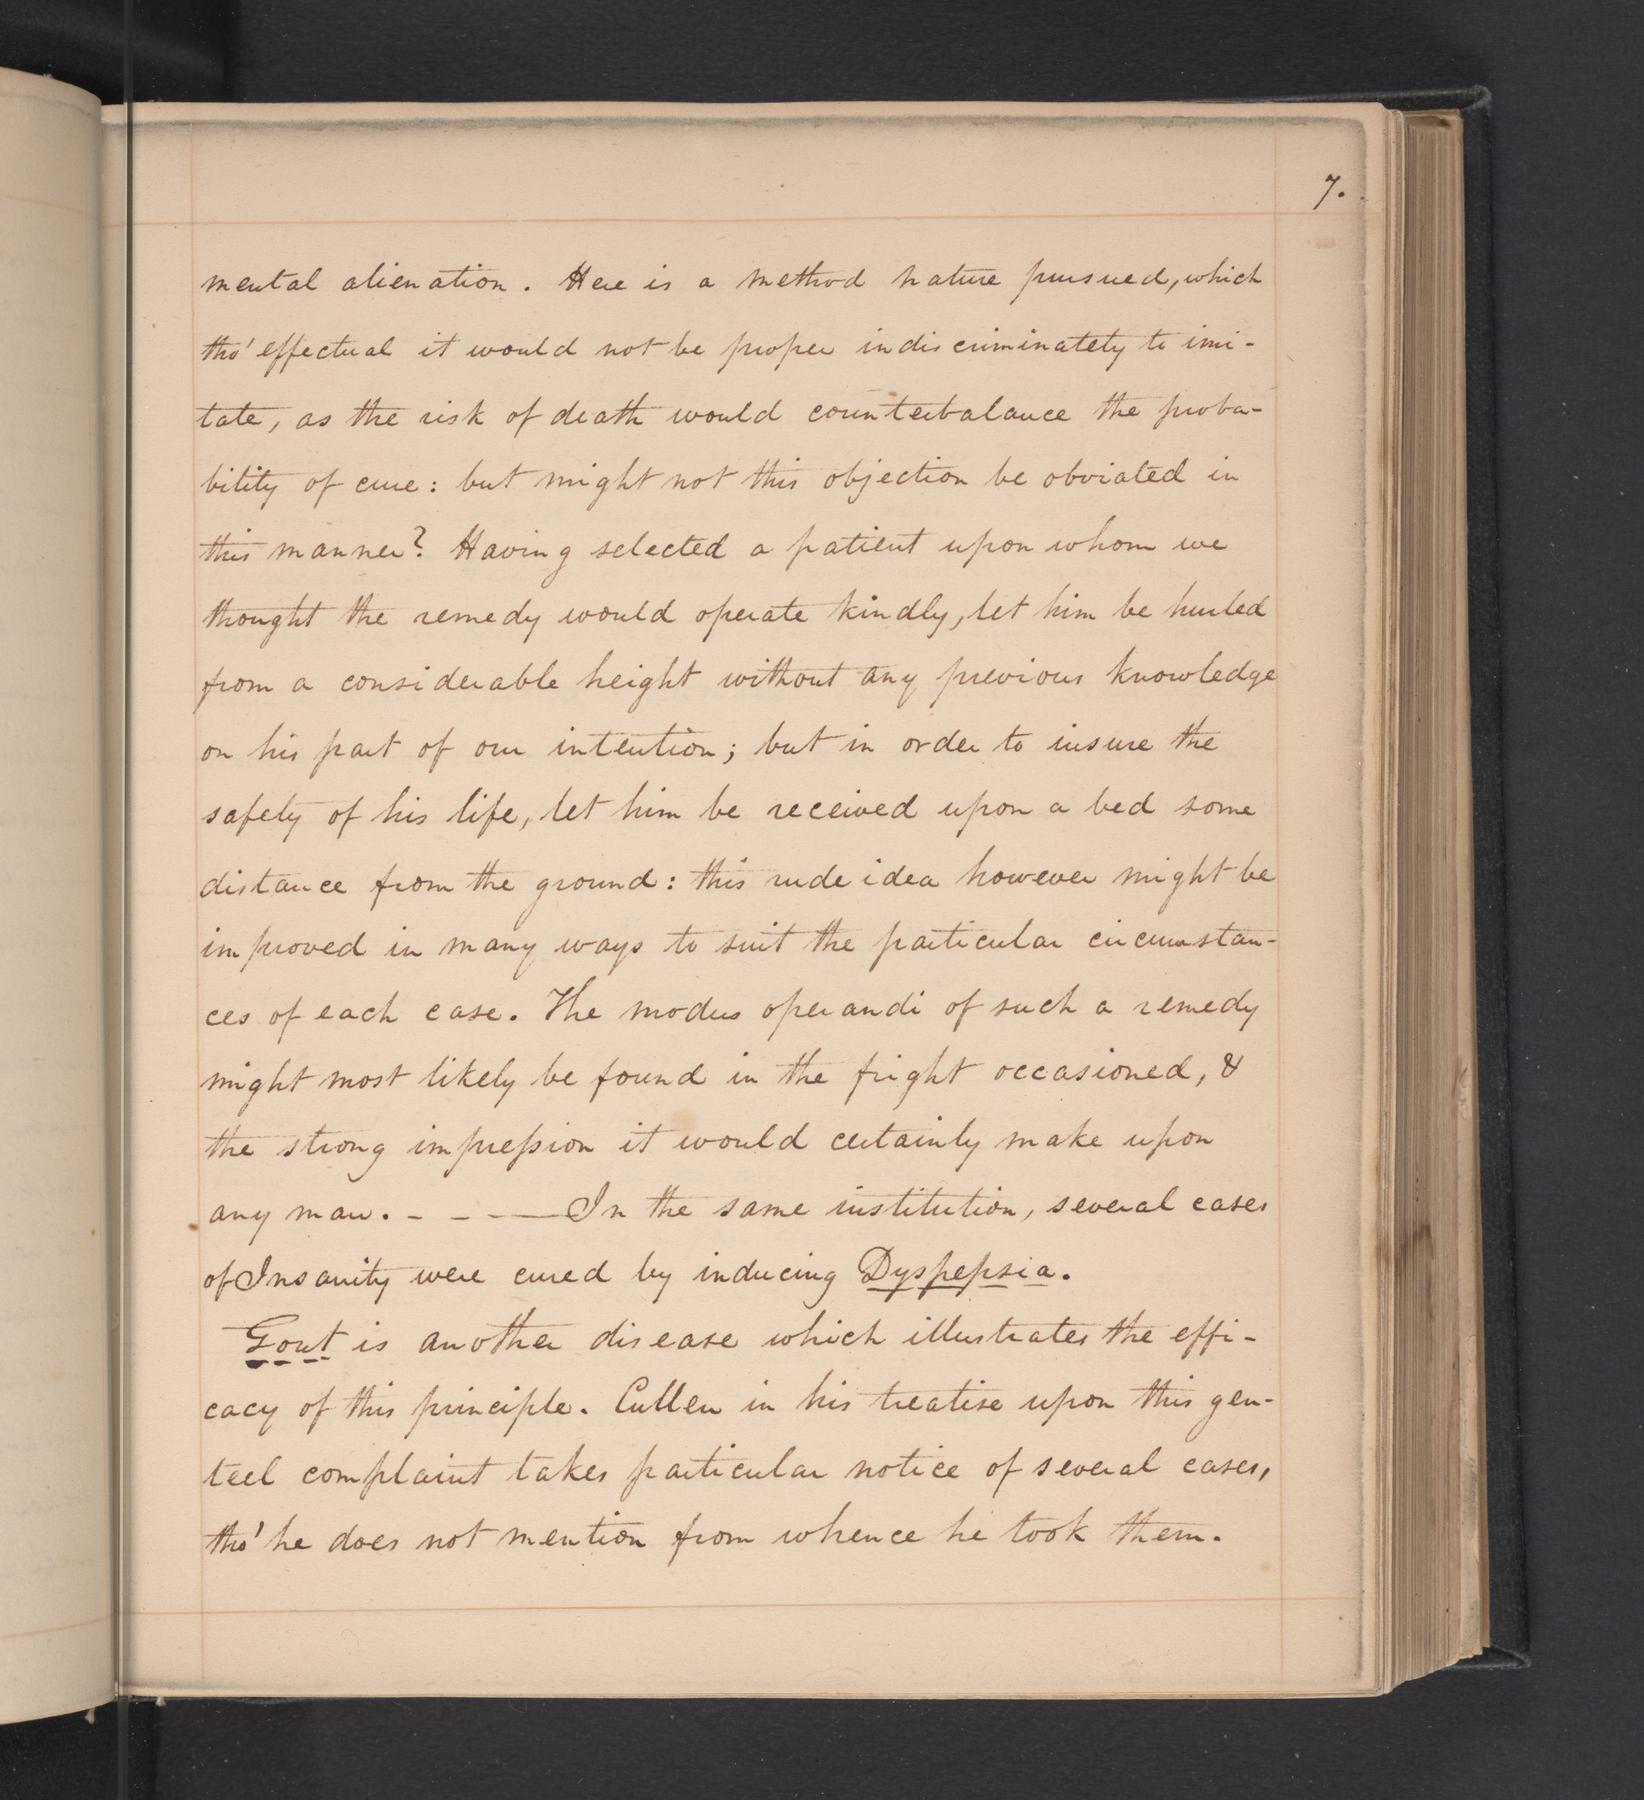 7.
mental alienation. Here is a method nature pursued, which
tho' effectual it would not be proper indiscriminately to imi-
tate, as the risk of death would counterbalance the proba-
bility of cure: but might not this objection be obviated in
this manner? Having selected a patient upon whom we
thought the remedy would operate kindly, let him be hurled
from a considerable height without any previous knowledge
on his part of our intention; but in order to insure the
safety of his life, let him be received upon a bed some
distance from the ground: this rude idea however might be
improved in many ways to suit the particular circumstan-
ces of each case. The modus operandi of such a remedy
might most likely be found in the fright occasioned, &
the strong impreſsion it would certainly make upon
any man. - - - — In the same institution, several cases
of Insanity were cured by inducing Dyspepsia.
Gout is another disease which illustrates the effi-
cacy of this principle. Cullen in his treatise upon this gen-
teel complaint takes particular notice of several cases,
tho' he does not mention from whence he took them.